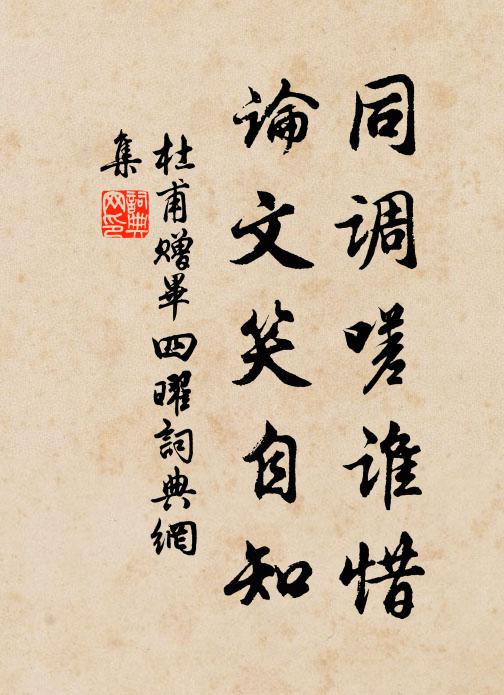 同调嗟谁惜
论文笑自知
杜甫赠畢四曜詞典網
集
詞典
网印